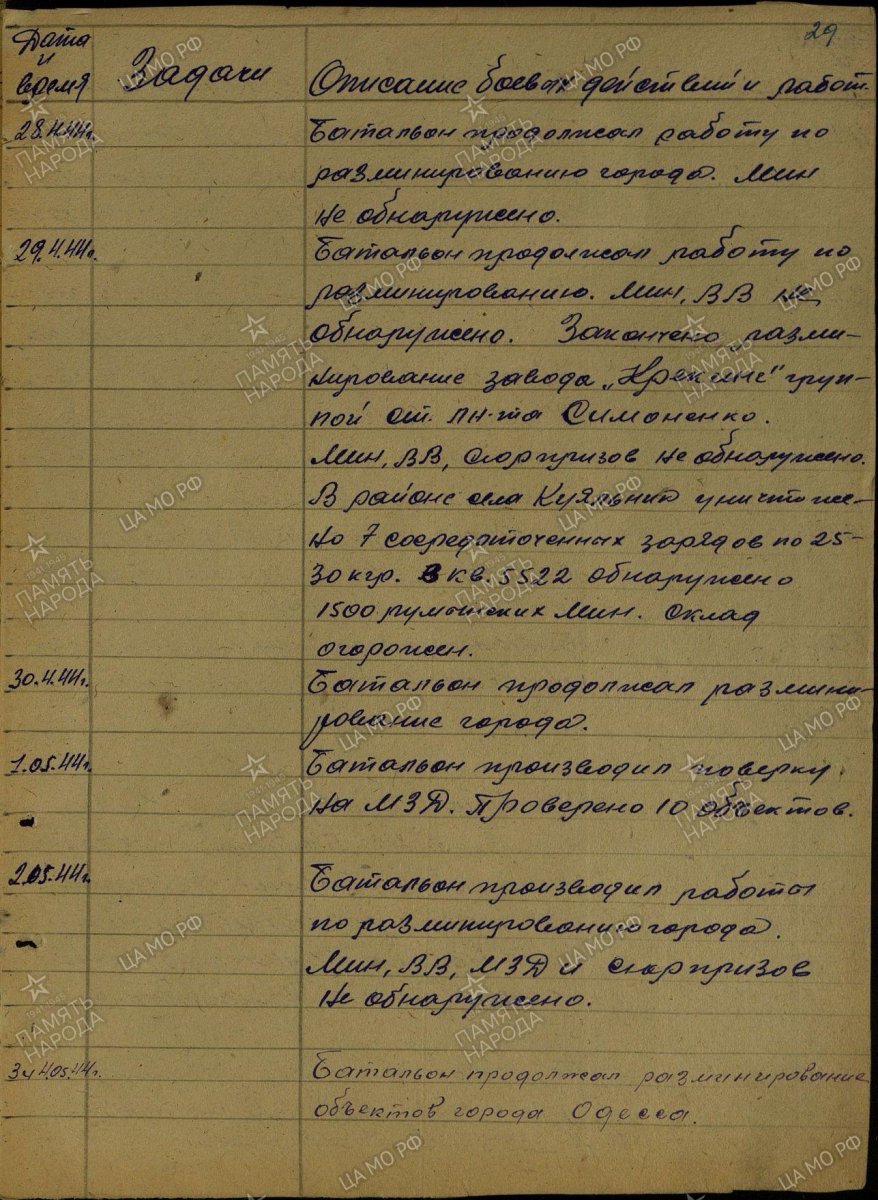 29
Дата
и
время
Задачи
Описание боевых действий и работ.
28.4.44г.
Батальон продолжал работу по
разминированию города. Мин
не обнаружено.
29.4.44г.
Батальон продолжал работу по
разминированию. Мин, ВВ не
обнаружено. Закончено разми-
нирование завода „Крекинг" груп-
пой ст. л-н-та Симоненко.
Мин, ВВ, сюрпризов не обнаружено.
В районе села Куяльник уничтоже-
но 7 сосредоточенных зарядов по 25-
30 кгр. В кв. 5522 обнаружено
1500 румынских мин. Склад
огорожен.
30.4.44г.
Батальон продолжал размини-
рование города.
1.05.44г.
Батальон производил поверку
на МЗД. Проверено 10 объектов.
2.05.44г.
Батальон производил работы
по разминированию города.
Мин, ВВ, МЗД и сюрпризов
не обнаружено.
3 и 4.05.44г.
Батальон продолжал разминирование
объектов города Одесса.
ЦА МО РФ
1941-1945
ПАМЯТЬ
НАРОДА